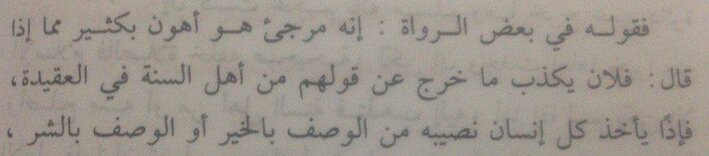 فقولـه في بعض الـرواة : إنه مرجئ هـو أهون بكثـير مما إذا
قال : فلان يكذب ما خرج عن قولهم من أهل السنة في العقيدة ،
فإذًا يأخذ كل إنسان نصيبه من الوصف بالخير أو الوصف بالشر ،